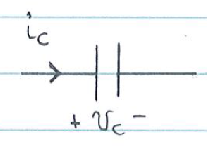 i_c
+ v_c -